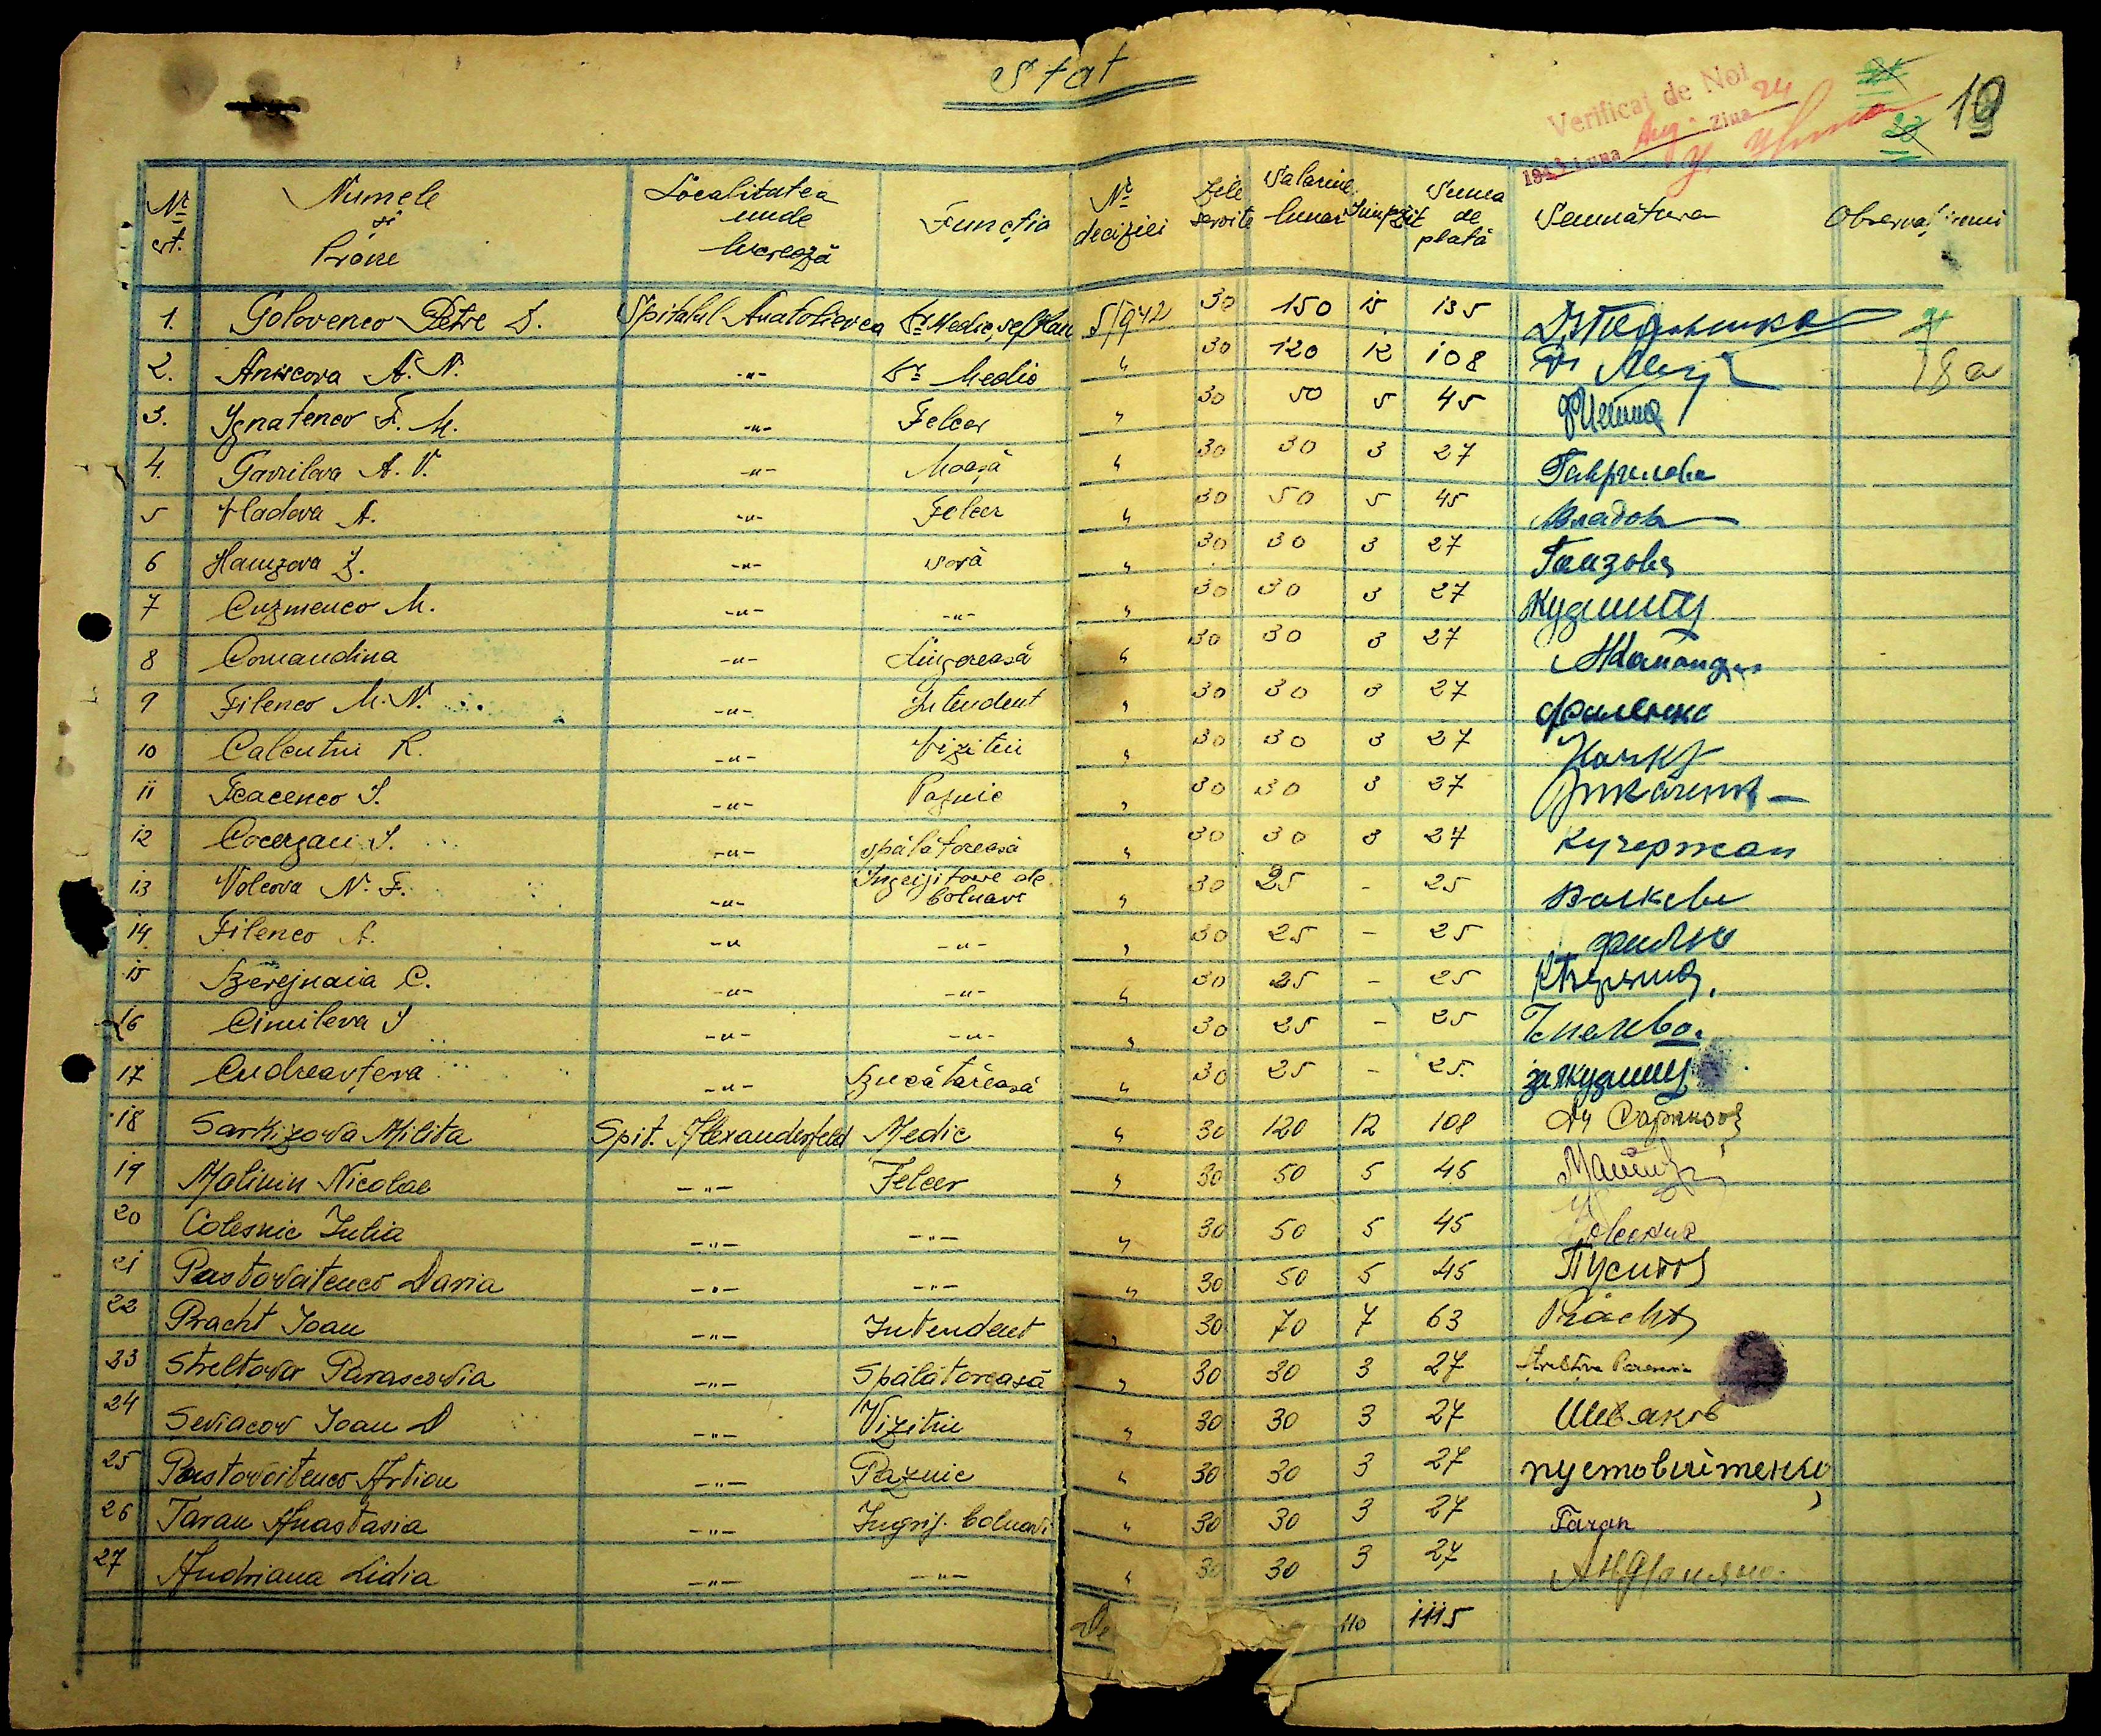 Stat
Verificat de Noi
1943 Luna Aug. Ziua 24
19
Nr crt. Numele și Prone Localitatea unde lucrează Funcția Nr deciziei Zile servite Salariu lunar Impozit Suma de plată Semnătura Observațiuni
1. Golovenco Petre D. Spitalul Anatolievca Dr Medic, șef 5/942 30 150 15 135
2. Aniscova A. N. -"- Dr Medic " 30 120 12 108 Dr
18 a
3. Ignatenco F. M. -"- Felcer " 30 50 5 45
4. Gavrilova A. V. -"- Moașă " 30 30 3 27 Гаврилова
5 Vladova A. -"- Felcer " 30 50 5 45 Владов
6 Hamzova D. -"- Soră " 30 30 3 27 Гамзова
7 Cuzmenco M. -"- -"- " 30 30 3 27
8 Comandina -"- Îngreasă " 30 30 3 27
9 Filenco M. N. -"- Intendent " 30 30 3 27 Филенко
10 Calcutin R. -"- Vizitiu " 30 30 3 27
11 Tcacenco I. -"- Paznic " 30 30 3 27
12 Cocerjan I. -"- spălătoreasă " 30 30 3 27 Кучержан
13 Volcova N. F. -"- Îngrijitoare de bolnavi " 30 25 - 25 Волкова
14. Filenco A. -"- -"- " 30 25 - 25
15 Berejnaia C. -"- -"- " 30 25 - 25
16 Cimileva I -"- -"- " 30 25 - 25
17 Cudreavțeva -"- Bucătăreasă " 30 25 - 25.
18 Sarkizova Milita Spit. Alexanderfeld Medic " 30 120 12 108
19 Malinin Nicolae -"- Felcer " 30 50 5 45
20 Colesnic Iulia -"- -"- " 30 50 5 45
21 Pustovoitenco Daria -"- -"- " 30 50 5 45
22 Pracht Ioan -"- Intendent " 30 70 7 63 Pracht
23 Strelțova Parascovia -"- Spălătoreasă " 30 30 3 27
24 Seviacov Ioan D -"- Vizitiu " 30 30 3 27 Шевяков
25 Pustovoitenco Artion -"- Paznic " 30 30 3 27 пустовийтенко
26 Taran Anastasia -"- Îngrij. bolnavi " 30 30 3 27 Taran
27 Andriana Lidia -"- -"- " 30 30 3 27
110 1115